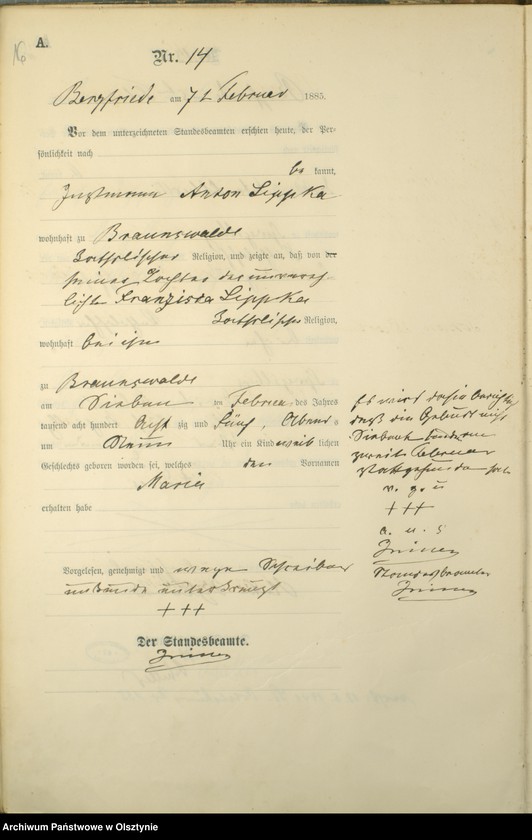 A.
Nr. 14
Bergfriede am 7t Februar 1885.
Vor dem unterzeichneten Standesbeamten erschien heute, der Per-
sönlichkeit nach
be kannt,
Instmann Anton Lippka
wohnhaft zu Braunswalde
katholischer Religion, und zeigte an, daß von der
seiner Tochter der unverehe-
lichte Franziska Lippka
katholischer Religion,
wohnhaft bei ihm
zu Braunswalde
am Sieben ten Februar des Jahres
tausend acht hundert Acht zig und Fünf, Abends
um Neun Uhr ein Kind weib lichen
Geschlechts geboren worden sei, welches den Vornamen
Maria
erhalten habe
Vorgelesen, genehmigt und wegen Schreibens
unkunde unterkreuzt
+++
Der Standesbeamte.
Es wird dahin berichtigt
daß die Geburt nicht
Siebent sondern
zweite Februar
stattgefunden hat
v. g. u
+++
a. u. s
Standesbeamter
Archiwum Państwowe w Olsztynie